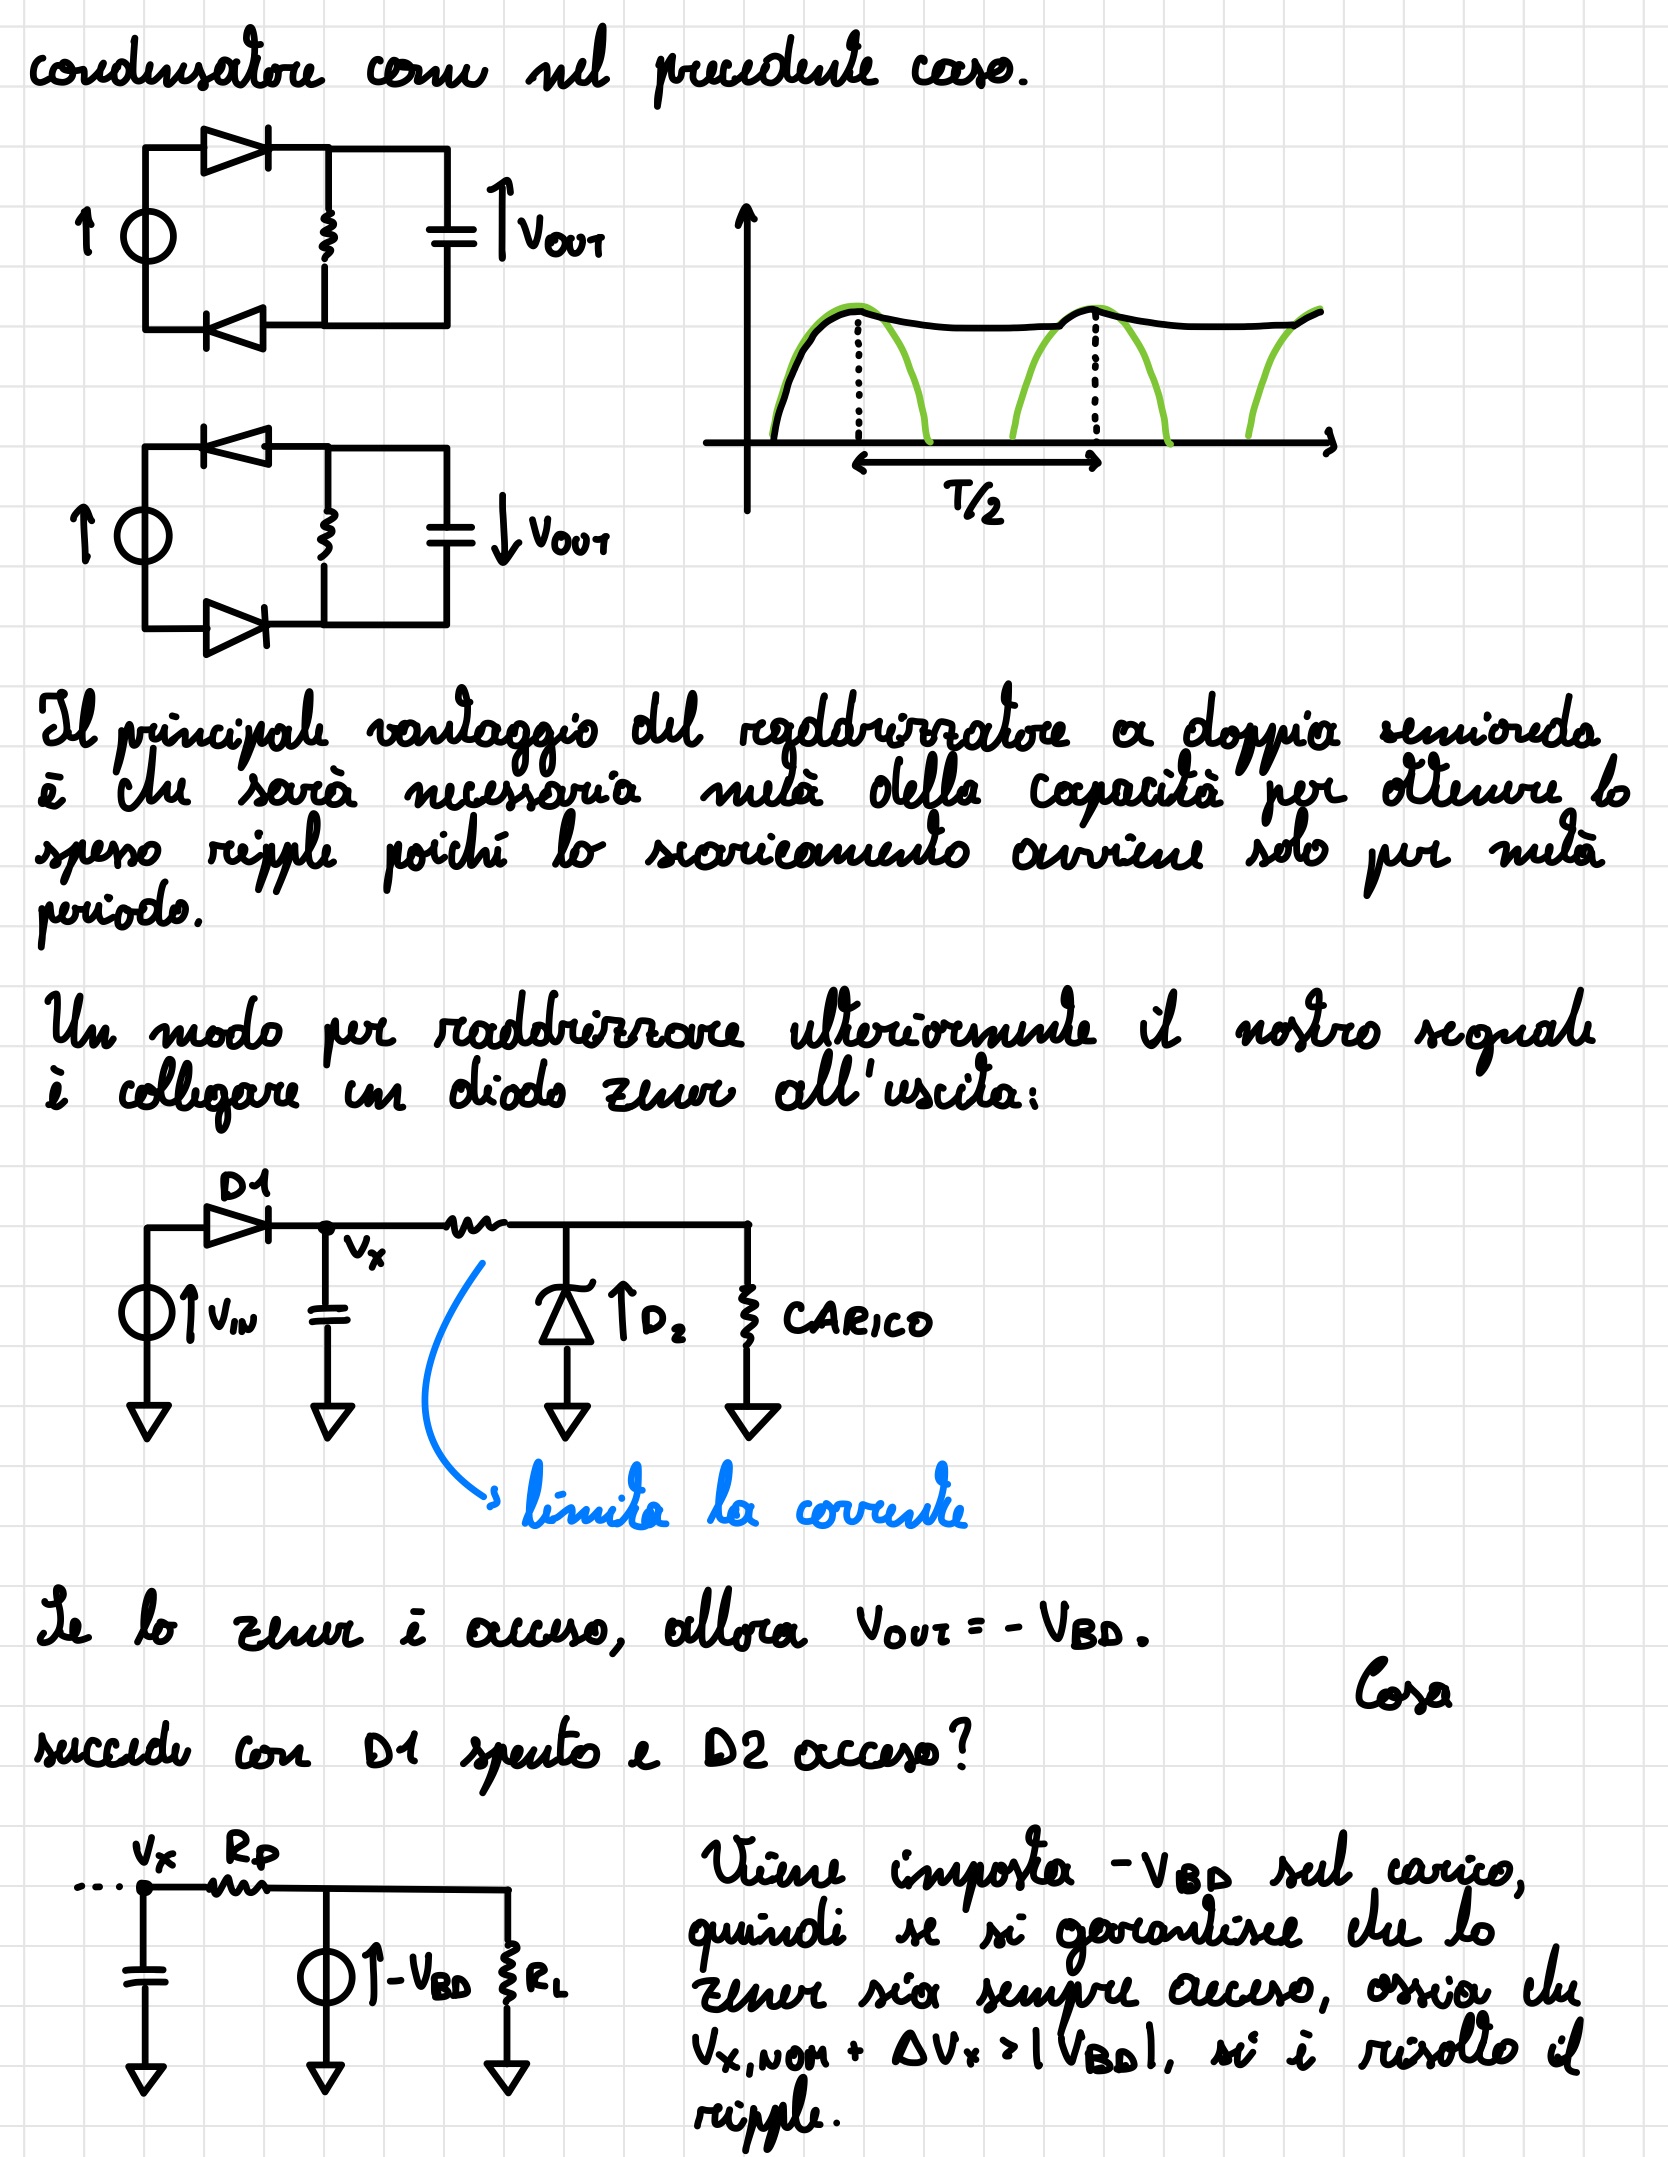 condensatore come nel precedente caso.
VOUT
T/2
VOUT
Il principale vantaggio del raddrizzatore a doppia semionda
è che sarà necessaria metà della capacità per ottenere lo
spesso ripple poiché lo scaricamento avviene solo per metà
periodo.
Un modo per raddrizzare ulteriormente il nostro segnale
è collegare un diodo zener all'uscita:
D1
Vx
VIN
D2
CARICO
limita la corrente
Se lo zener è acceso, allora VOUT = - VBD.
Cosa
succede con D1 spento e D2 acceso?
Vx RP
-VBD
RL
Viene imposta -VBD sul carico,
quindi se si garantisce che lo
zener sia sempre acceso, ossia che
Vx,NOM + ΔVx > |VBD|, si è risolto il
ripple.